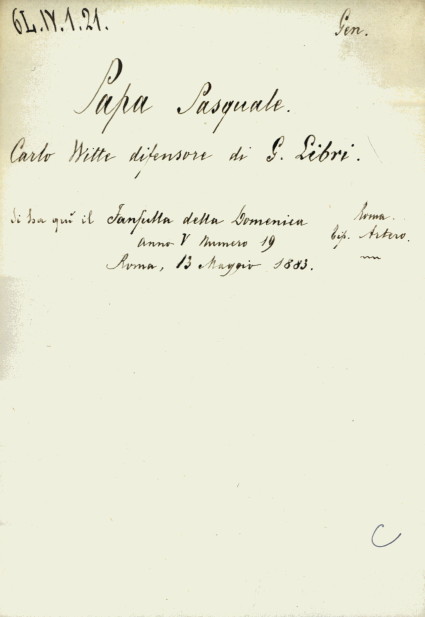 6L.IV.1.21.
Gen.
Papa Pasquale.
Carlo Witte difensore di G. Libri.
Si ha qui il Fanfulla della Domenica
anno V Numero 19
Roma, 13 Maggio 1883.
Roma.
tip. Artero.
C